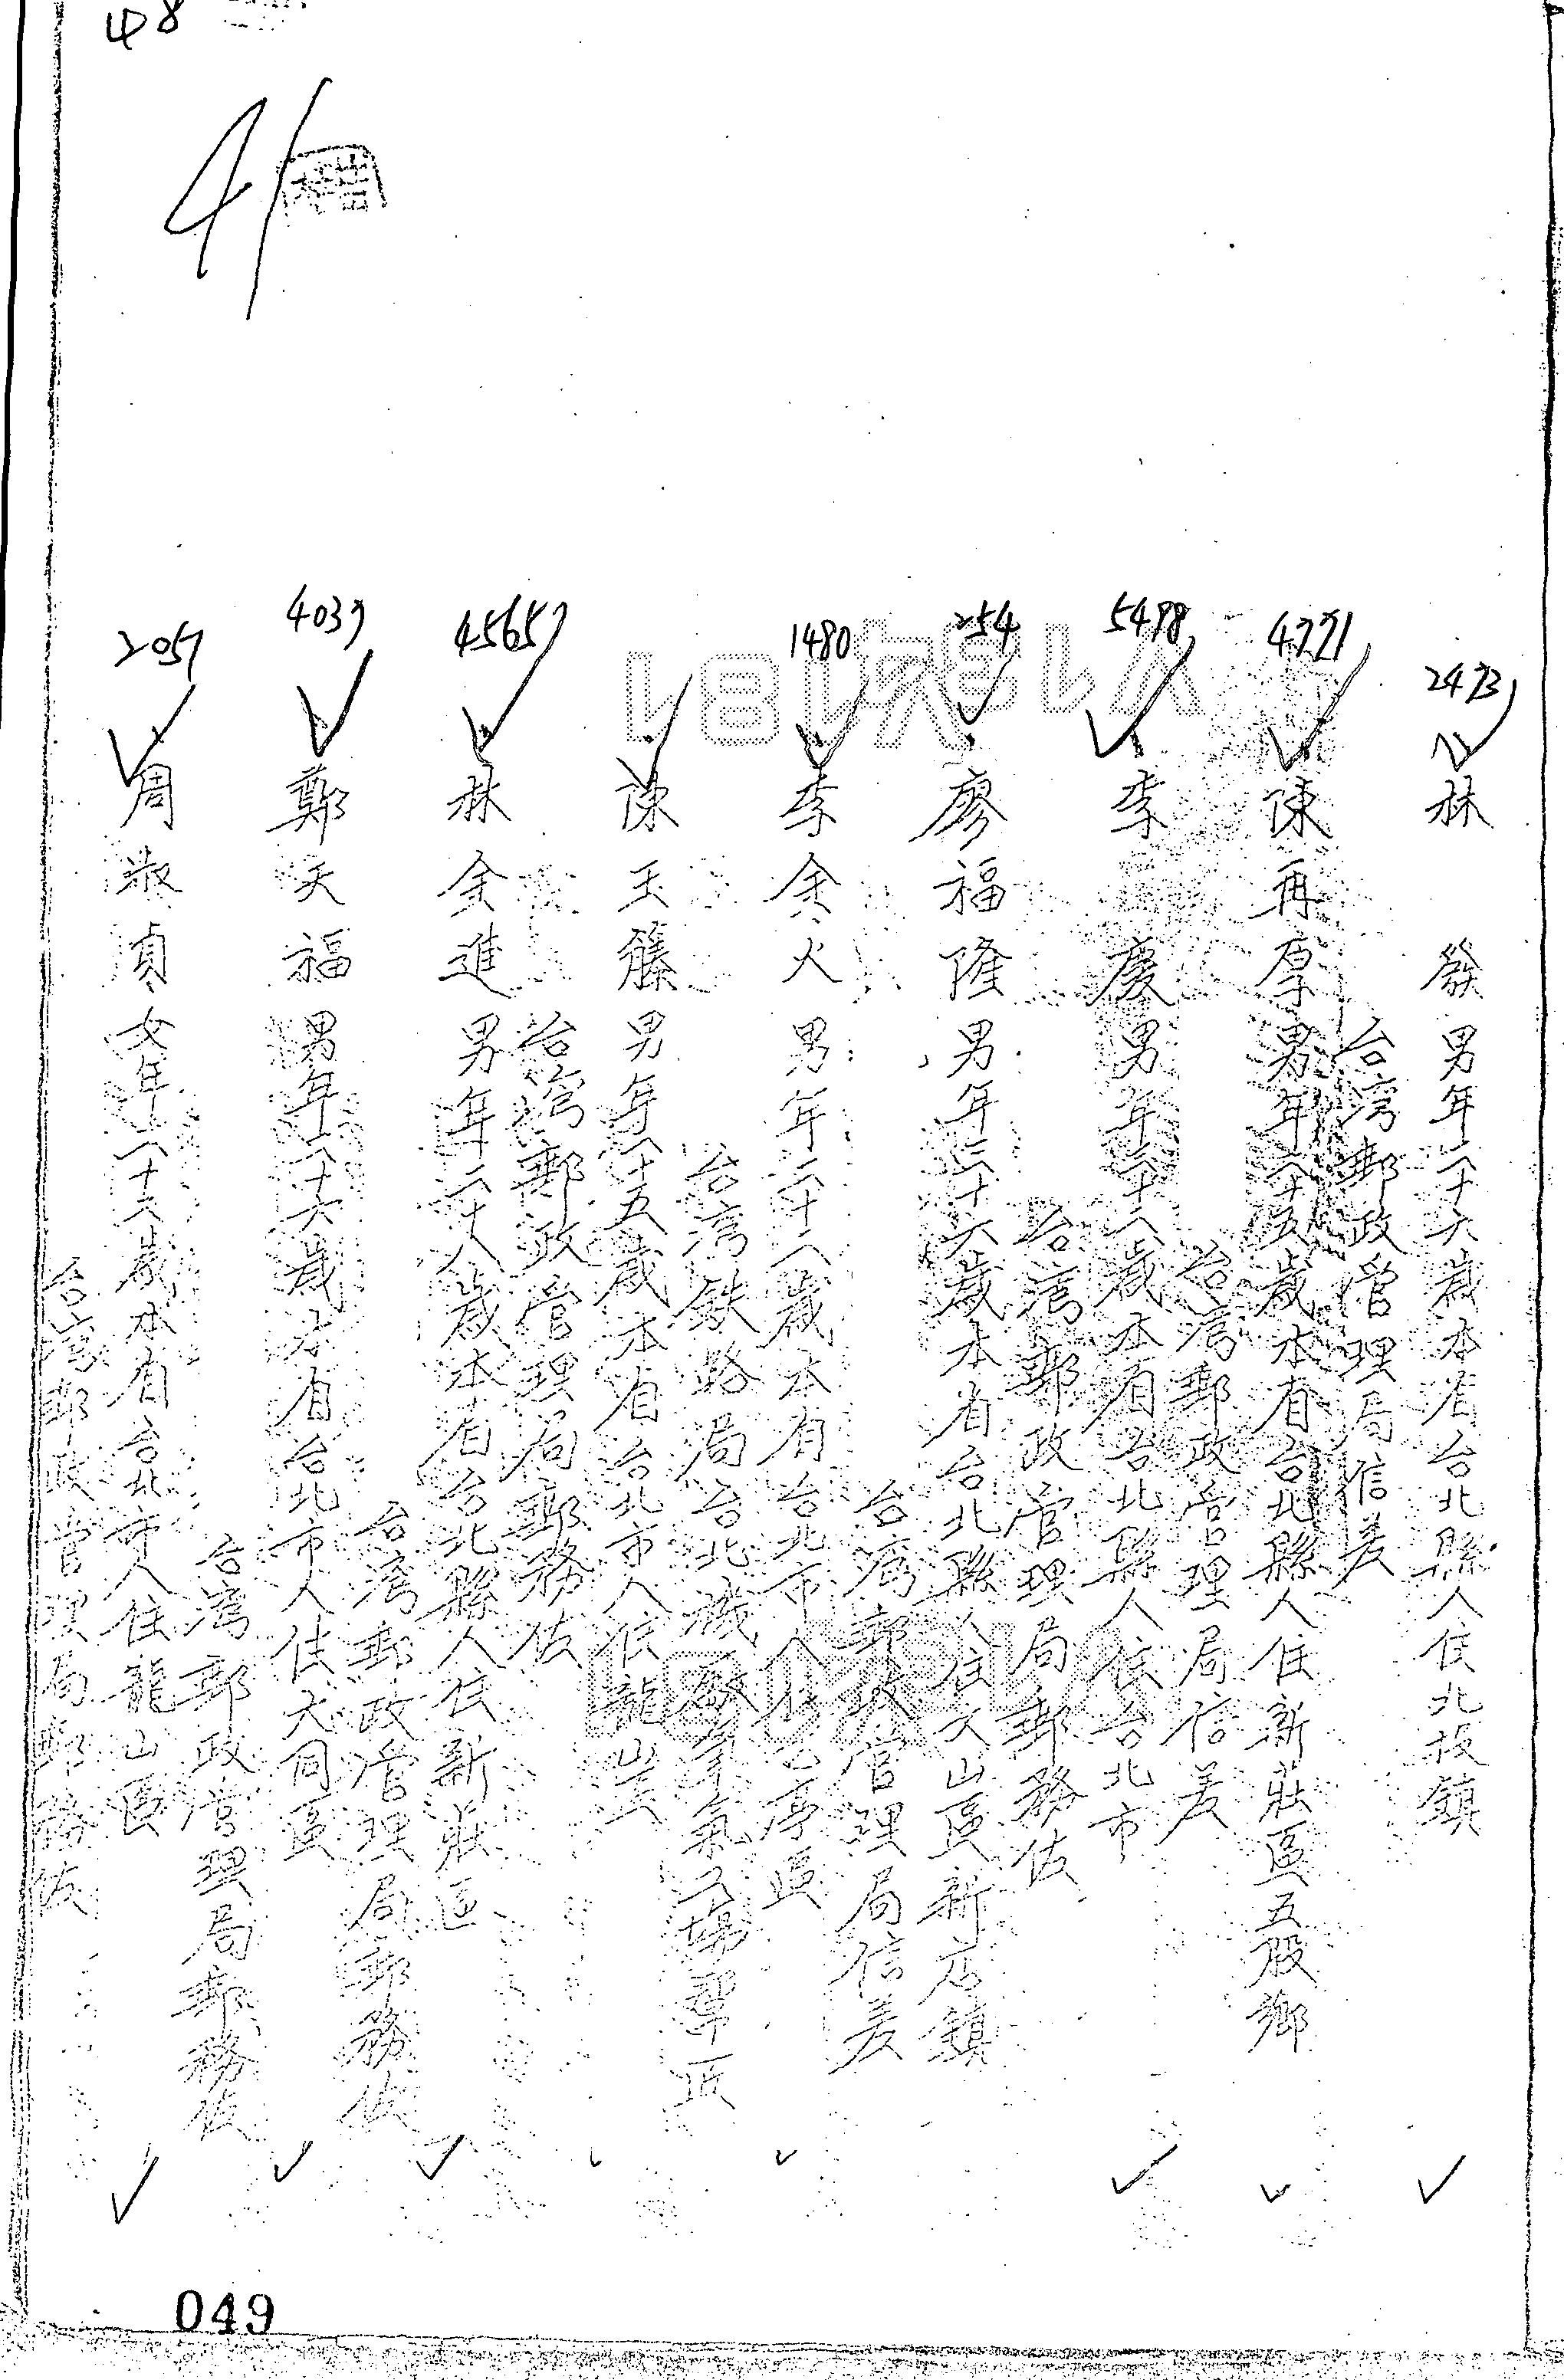 48
41
2473
林　發男年二十六歲本省台北縣人住北投鎮
台灣郵政管理局信差
4221
陳再厚男年二十五歲本省台北縣人住新莊區五股鄉
台灣郵政管理局信差
5498
李　慶男年二十八歲本省台北縣人住台北市
台灣郵政管理局郵務佐
254
廖福隆男年三十六歲本省台北縣人住文山區新店鎮
台灣郵政管理局信差
1480
李金火男年二十八歲本省台北市人住區
台灣鉄路局台北機廠氧氣工場
陳玉籐男年二十五歲本省台北市人住龍山區
台灣郵政管理局郵務佐
4565
林金進男年二十八歲本省台北縣人住新莊區
台灣郵政管理局郵務佐
4039
鄭天福男年二十六歲本省台北市人住大同區
台灣郵政管理局郵務佐
2057
周淑貞女年二十六歲本省台北市人住龍山區
台灣郵政管理局郵務佐
049